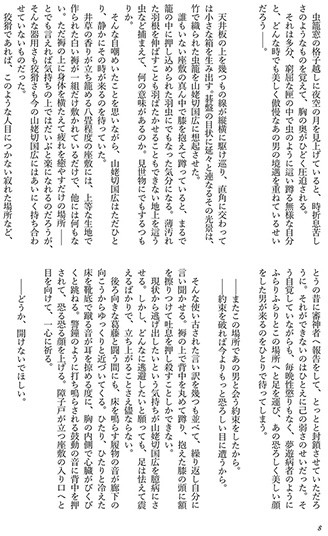 虫籠窓の格子越しに夜空の月を見上げていると、時折息苦し
さのようなものを覚えて、胸の奥がひどく圧迫される。
それは多分、窮屈な匣の中で虫のように蹲る無様な自分
と、どんな時でも美しく傲慢なあの男の境遇を重ねているせい
だろう――。
天井板の上を幾つもの線が縦横に駆け巡り、直角に交わって
は小さな箱を生み出す。碁盤の目状に延々と連なるその光景は、
竹で織られた虫籠を山姥切国広に想起させた。
誰もいない座敷の真ん中で膝を抱えて蹲っていると、まるで
籠の中に押し込められた羽虫にでもなった気分になる。薄汚れ
た羽根を伸ばすことも羽ばたかせることもできない地上を這う
虫など捕まえて、何の意味があるのか。見世物にでもするつも
りか。
そんな自嘲めいたことを思いながら、山姥切国広はただひと
り、静かにその時が来るのを待っていた。
井草の香りが立ち籠める八畳程度の座敷には、上等な生地で
作られた白い褥が一組だけ敷かれているだけで、他には何もな
い。ただ褥の上に身体を横たえて疲れを癒やすだけの場所――
とでも言えれば気持ちの上ではだいぶと楽になれるのだろうが、
そんな器用さも狡猾さも今の山姥切国広にはあいにく持ち合わ
せていないものだった。
狡猾であれば、このような人目につかない寂れた場所など、
とうの昔に審神者へ報告をして、とっとと封鎖させていただろ
うに。それができないのはひとえに己の弱さのせいだった。そ
う自覚していながらも、毎晩性懲りもなく、夢遊病者のように
ふらりふらりとこの場所へと足を運び、あの恐ろしく美しい顔
をした男が来るのをひとりで待ってしまう。
――またこの場所であの男と会う約束をしたから。
――約束を破れば今よりもっと恐ろしい目に遭うから。
そんな使い古された言い訳を幾つも並べて、繰り返し自分に
言い聞かせる。褥の上で背中を丸めて蹲り、抱えた膝の頭に額
を擦りつけて吐息を押し殺すことしかできない。
現状から逃げ出したいという気持ちが山姥切国広を臆病にさ
せる。しかし、どんなに逃避したいと願っても、足は怯えて震
えるばかりで、立ち上がることさえ儘ならない。
後ろ向きな葛藤と闘う間にも、床を鳴らす履物の音が廊下の
向こうからゆっくりと近づいてくる。ひたり、ひたりと冷えた
床を靴底で蹴る音が耳を掠める度に、胸の内側で心臓がびくび
くと跳ねる。警鐘のように打ち鳴らされる鼓動の音に背中を押
されて、恐る恐る顔を上げる。障子戸が立つ座敷の入り口へと
目を向けて、一心に祈る。
――どうか、開けないでほしい。
8